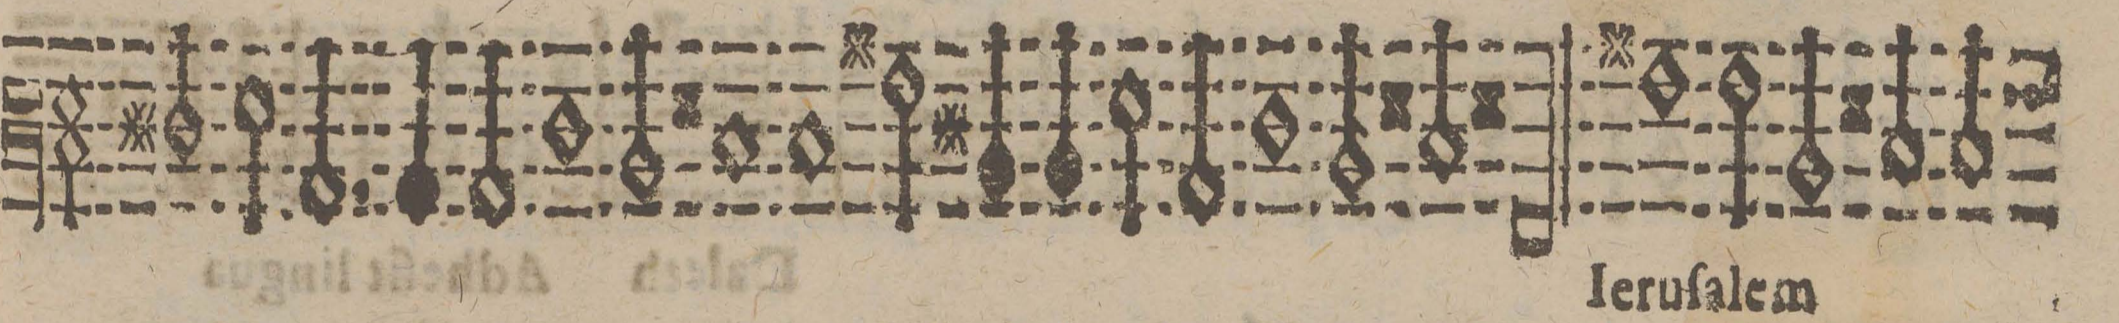 Ieruſalem